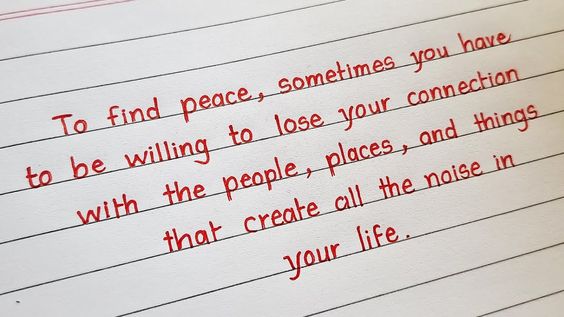 To find peace, sometimes you have
to be willing to lose your connection
with the people, places, and things
that create all the noise in
your life.